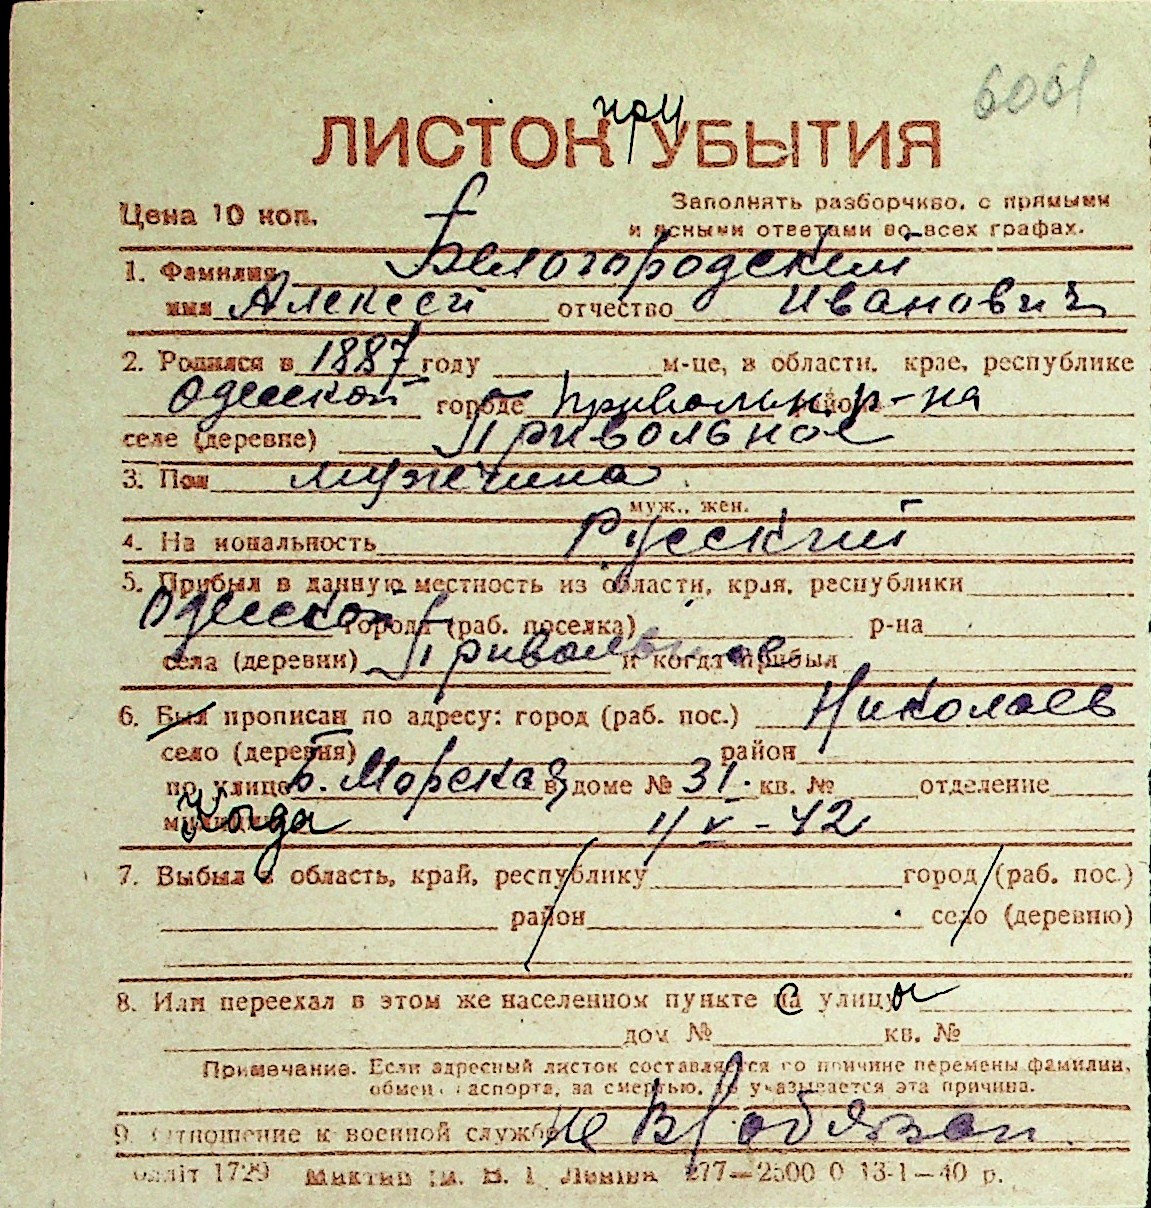 6061
при
ЛИСТОК УБЫТИЯ
Цена 10 коп.
Заполнять разборчиво, с прямыми
и ясными ответами во всех графах.
1. Фамилия Белогородский
имя Алексей отчество Иванович
2. Родился в 1887 году м-це, в области, крае, республике
Одесской городе Привольн. р-на районе
селе (деревне) Привольное
3. Пол мужчина
муж., жен.
4. Национальность Русский
5. Прибыл в данную местность из области, края, республики
Одесской города (раб. поселка) р-на
села (деревни) Привольное и когда прибыл
6. Был прописан по адресу: город (раб. пос.) Николаев
село (деревня) район
по улице Б. Морская в доме № 31. кв. № отделение
милиции Когда 4/V - 42
7. Выбыл в область, край, республику город (раб. пос.)
район село (деревню)
8. Или переехал в этом же населенном пункте на с улицу ы
дом № кв. №
Примечание. Если адресный листок составляется по причине перемены фамилии,
обмена паспорта, за смертью, то указывается эта причина.
9. Отношение к военной службе не в/обязан.
1729 ім. В. І. Леніна 277—2500 0 13-1—40 р.